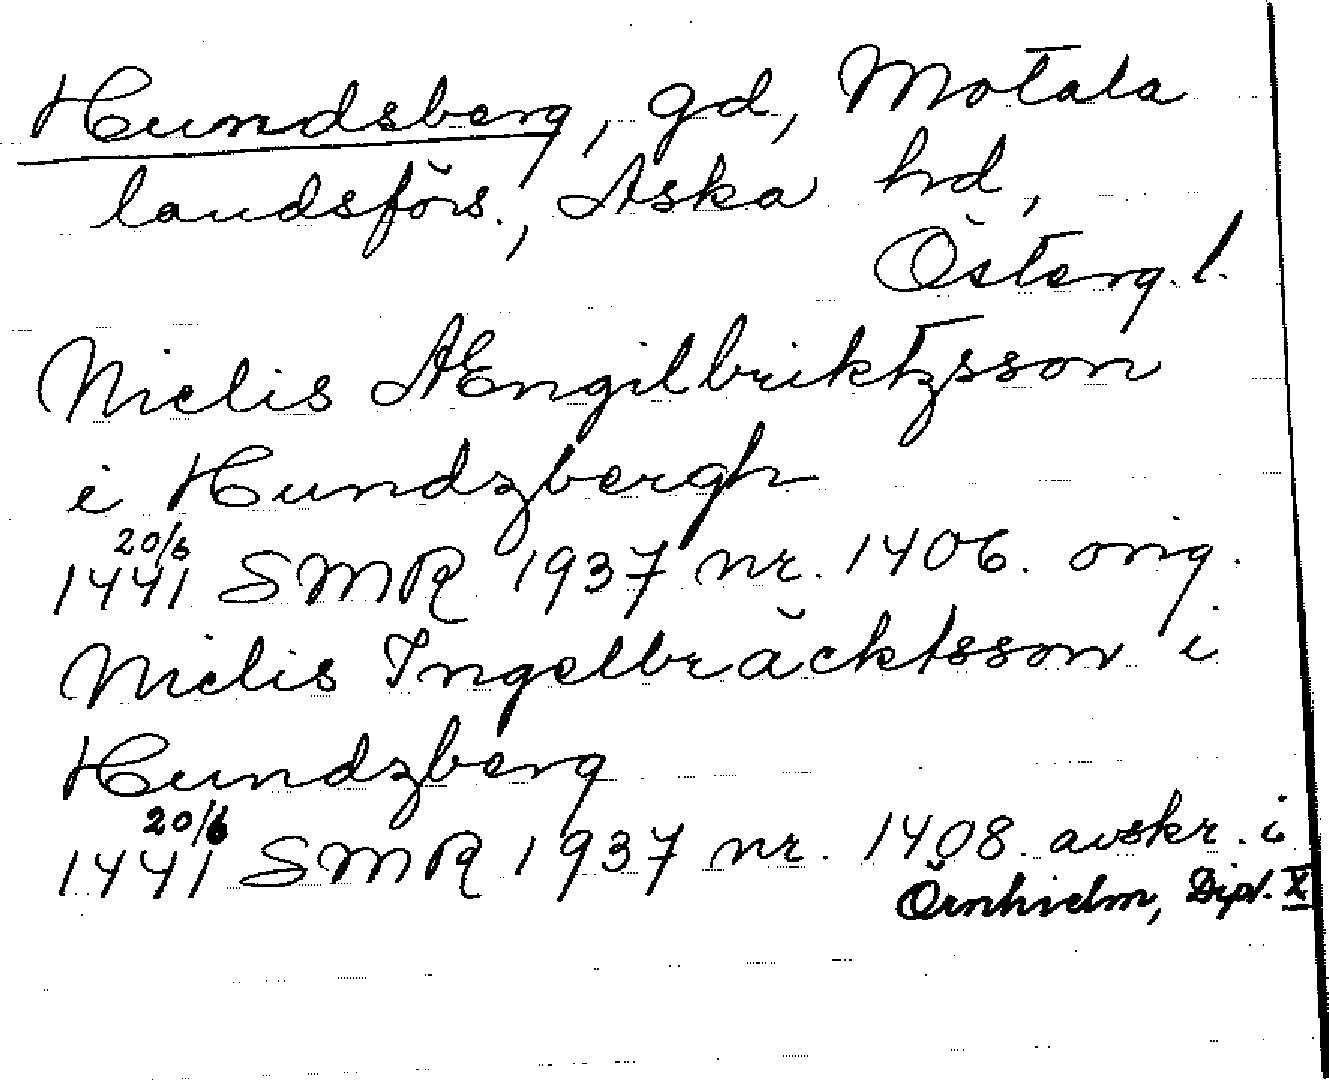 Hundsberg, gd, Motala
landsförs., Aska hd,
Österg. l.
Nielis AEngilbriktzsson
i Hundzbergh
20/6
1441 SMR 1937 nr. 1406. orig.
Nielis Ingelbräcktsson i
Hundzberg
20/6
1441 SMR 1937 nr. 1408. avskr. i
Örnhielm, Dipl. X